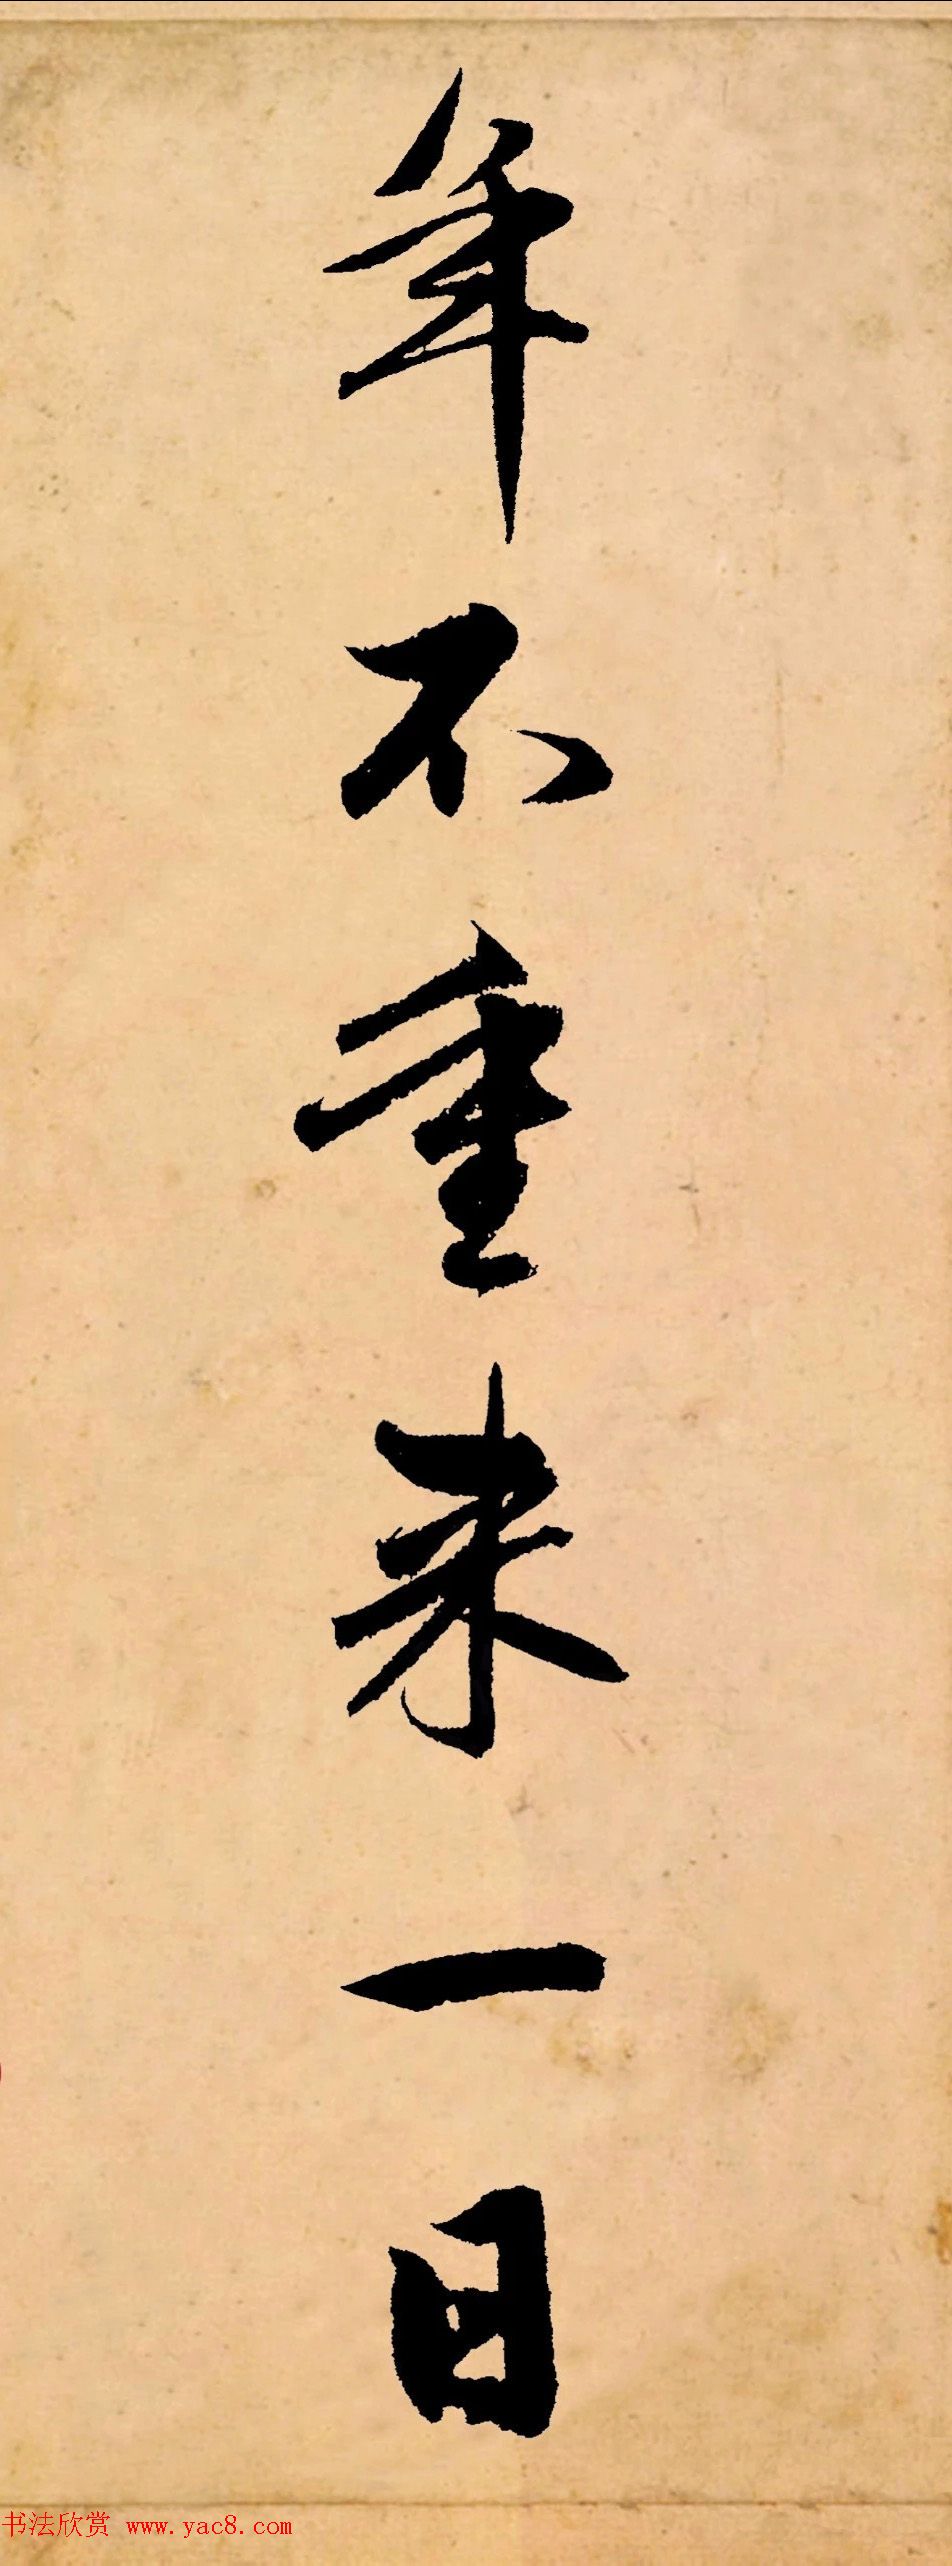 年不重来一日
书法欣赏 www.yac8.com